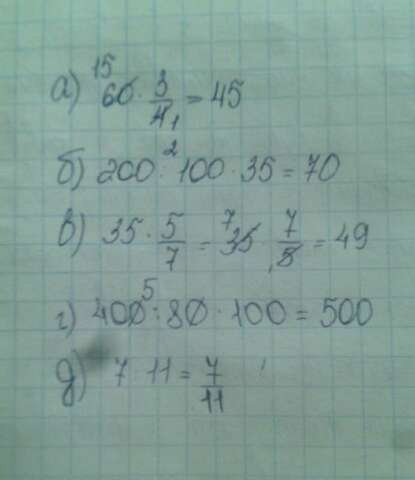 а) 60 15 · 3/4 1 = 45
б) 200 : 100 2 · 35 = 70
в) 35 · 5/7 = 35 7 · 7/5 = 49
г) 400 : 80 5 · 100 = 500
д) 7 11 = 7/11